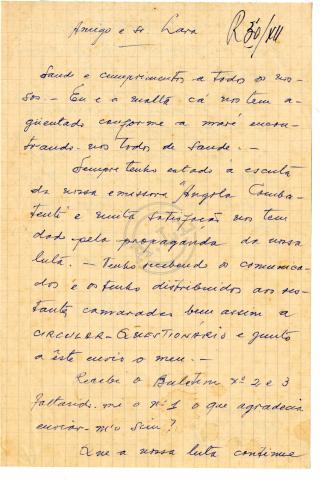 Amigo e sr Lara
R 30/XII
Saude e cumprimentos a todos os nos-
sos. – Eu e a malta cá nos tem a-
guentado conforme a maré encon-
trando-nos todos de saude. –
Sempre tenho estado à escuta
da nossa emissora "Angola Comba-
tente e muita satisfação nos tem
dad pela propaganda da nossa
luta. – Tenho recebend os comunica-
dos e os tenho distribuidos aos res-
tantes camaradas bem assim a
CIRCULAR-QUESTIONÁRIO e junto
a êste envio o meu. –
Recebi o Buletim nº 2 e 3
faltando-me o nº 1 o que agradecia
enviar-m'o sim?
Que a nossa luta continue